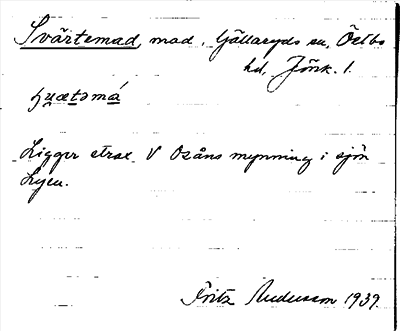 Svärtemad, mad, Gällaryds sn, Östbo
hd, Jönk. l.
Ligger strax V Osåns mynning i sjön
Lyen.
Fritz Andersson 1939.